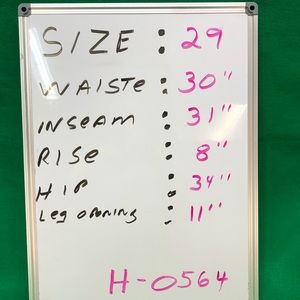 SIZE : 29
WAISTe : 30"
INSeAM : 31"
RISe : 8"
HIP : 34"
Leg opening : 11"
H-0564